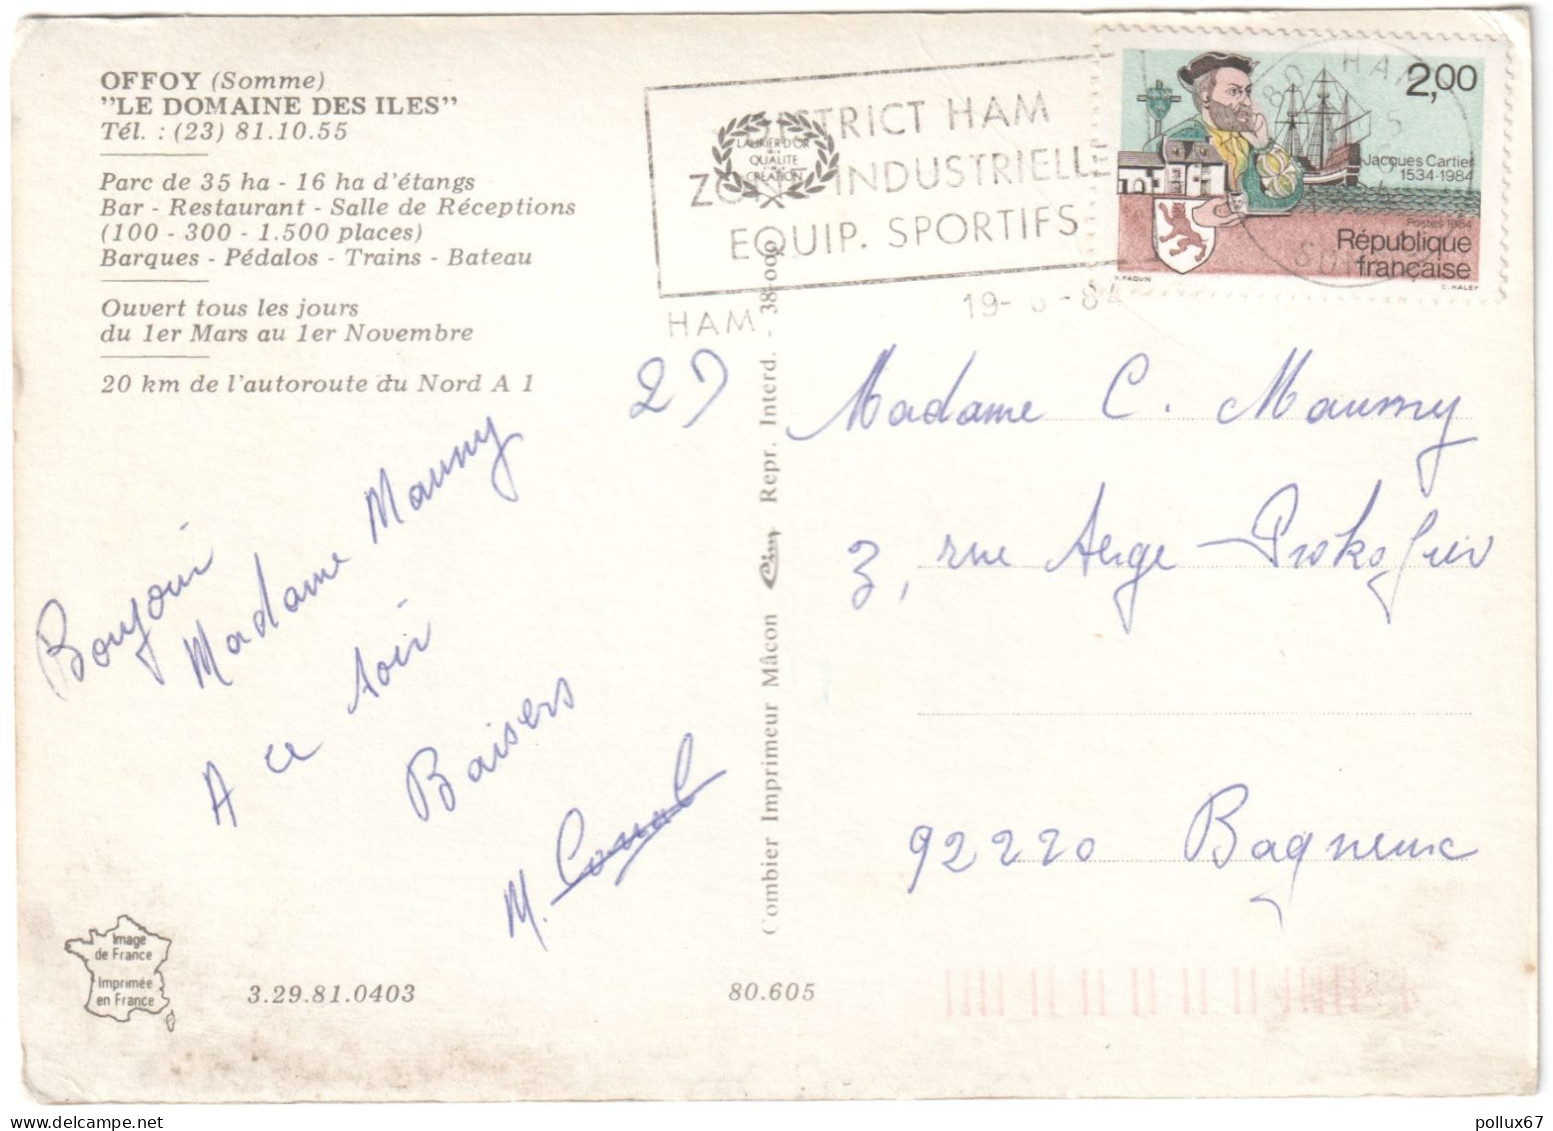 OFFOY (Somme)
"LE DOMAINE DES ILES"
Tél. : (23) 81.10.55
Parc de 35 ha - 16 ha d'étangs
Bar - Restaurant - Salle de Réceptions
(100 - 300 - 1.500 places)
Barques - Pédalos - Trains - Bateau
Ouvert tous les jours
du 1er Mars au 1er Novembre
20 km de l'autoroute du Nord A 1
Bonjour
Madame Mauny
A ce soir
Baisers
M.
Image
de France
Imprimée
en France
3.29.81.0403
80.605
LAURIER D'OR
DE LA
QUALITE
CREATION
DISTRICT HAM
ZONE INDUSTRIELLE
EQUIP. SPORTIFS
HAM
19- 6 -84
2,00
Jacques Cartier
1534-1984
Postes 1984
République
française
H. PAQUIN
C. HALEY
80 HAM
Combier Imprimeur Mâcon Cim Repr. Interd. - 38-000
Madame C. Mauny
3, rue Serge Prokofiev
92220 Bagneux
pollux67